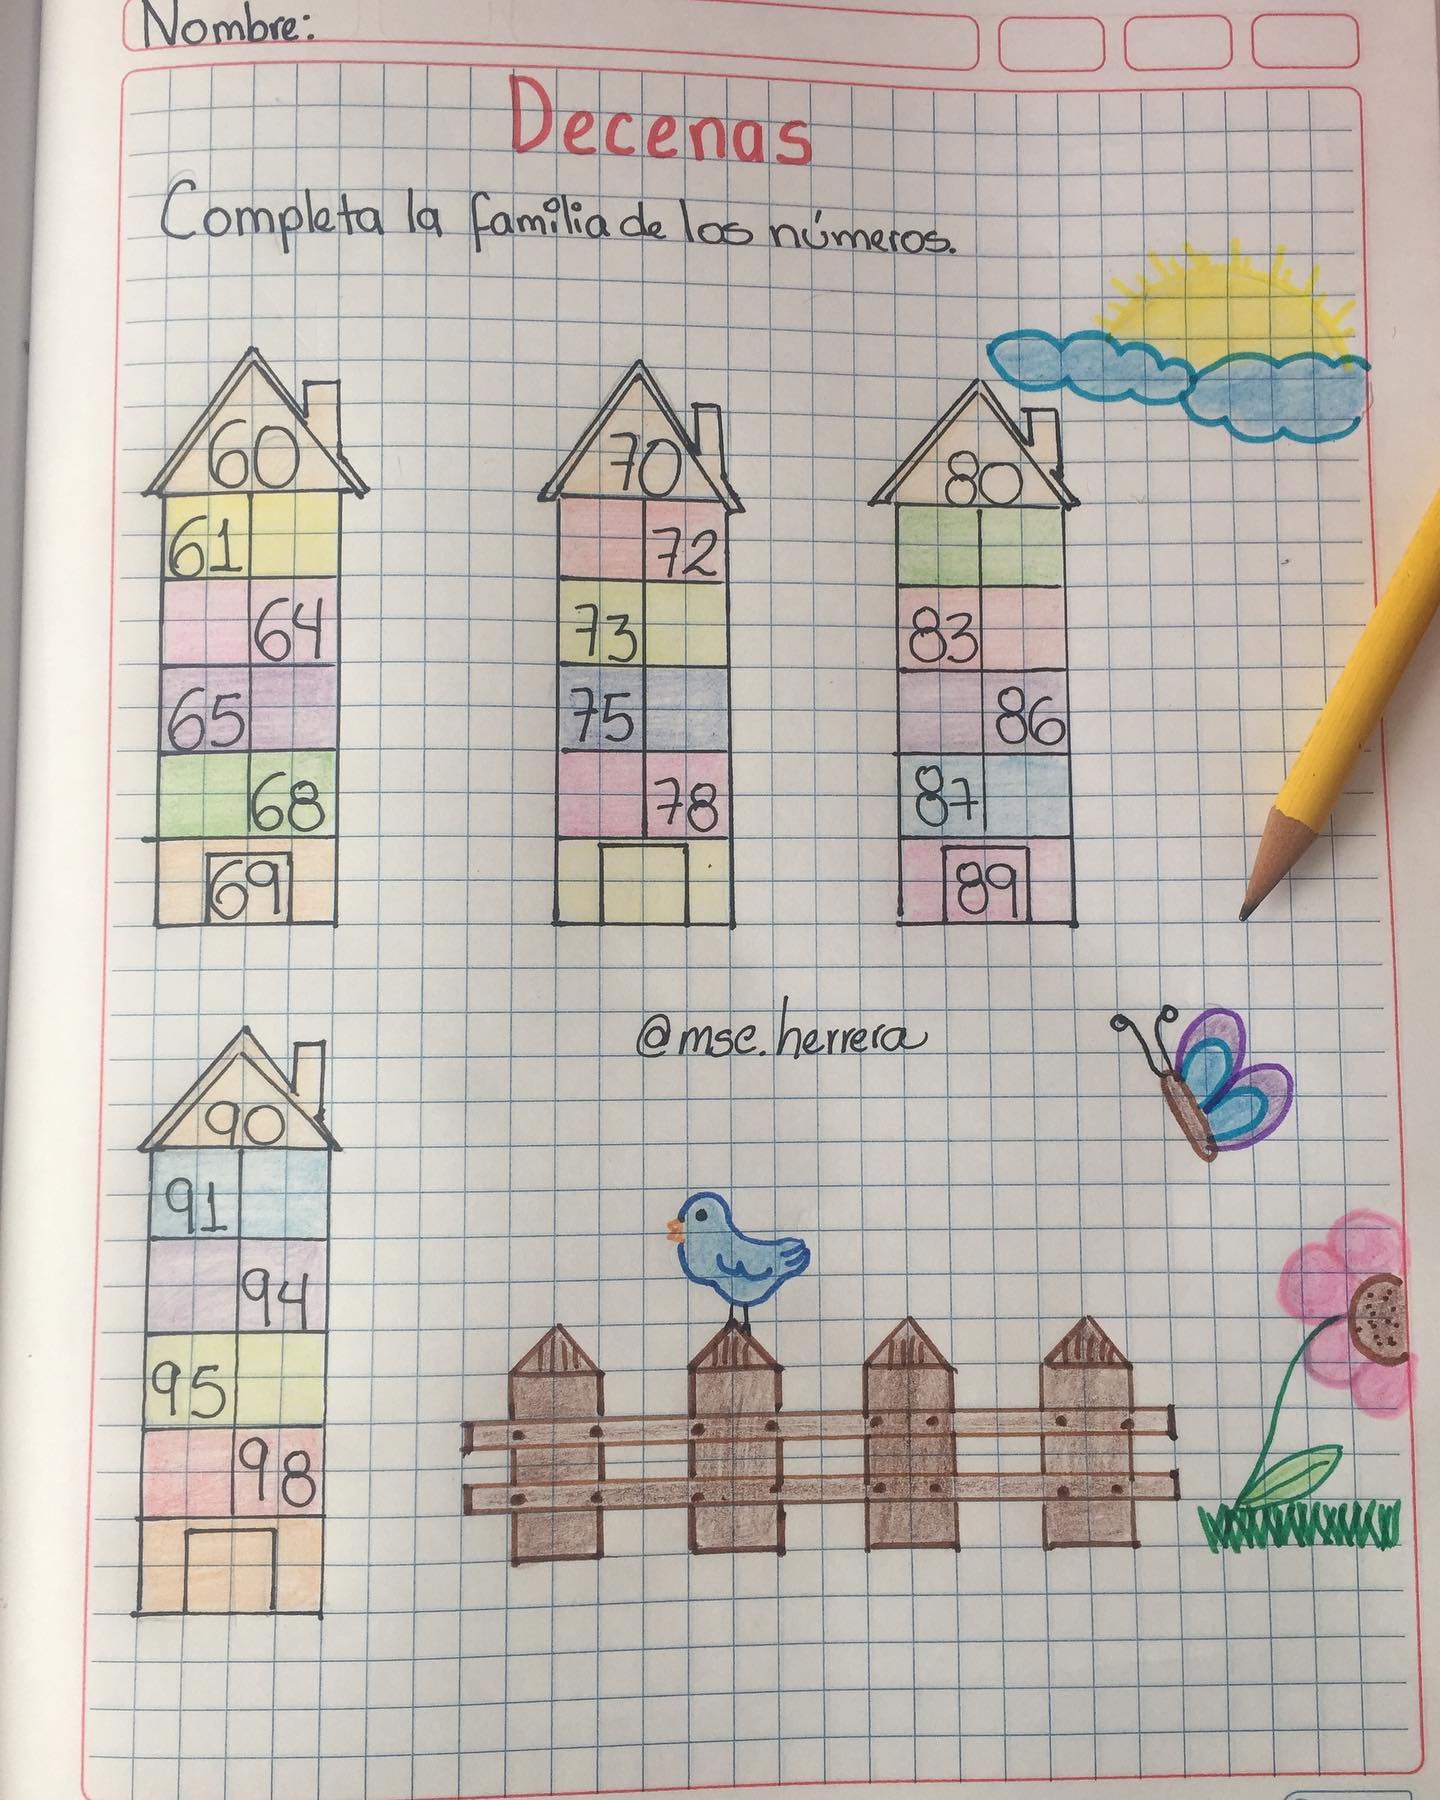 Nombre:
Decenas
Completa la familia de los números.
60
61
64
65
68
69
70
72
73
75
78
80
83
86
87
89
@mse.herrera
90
91
94
95
98